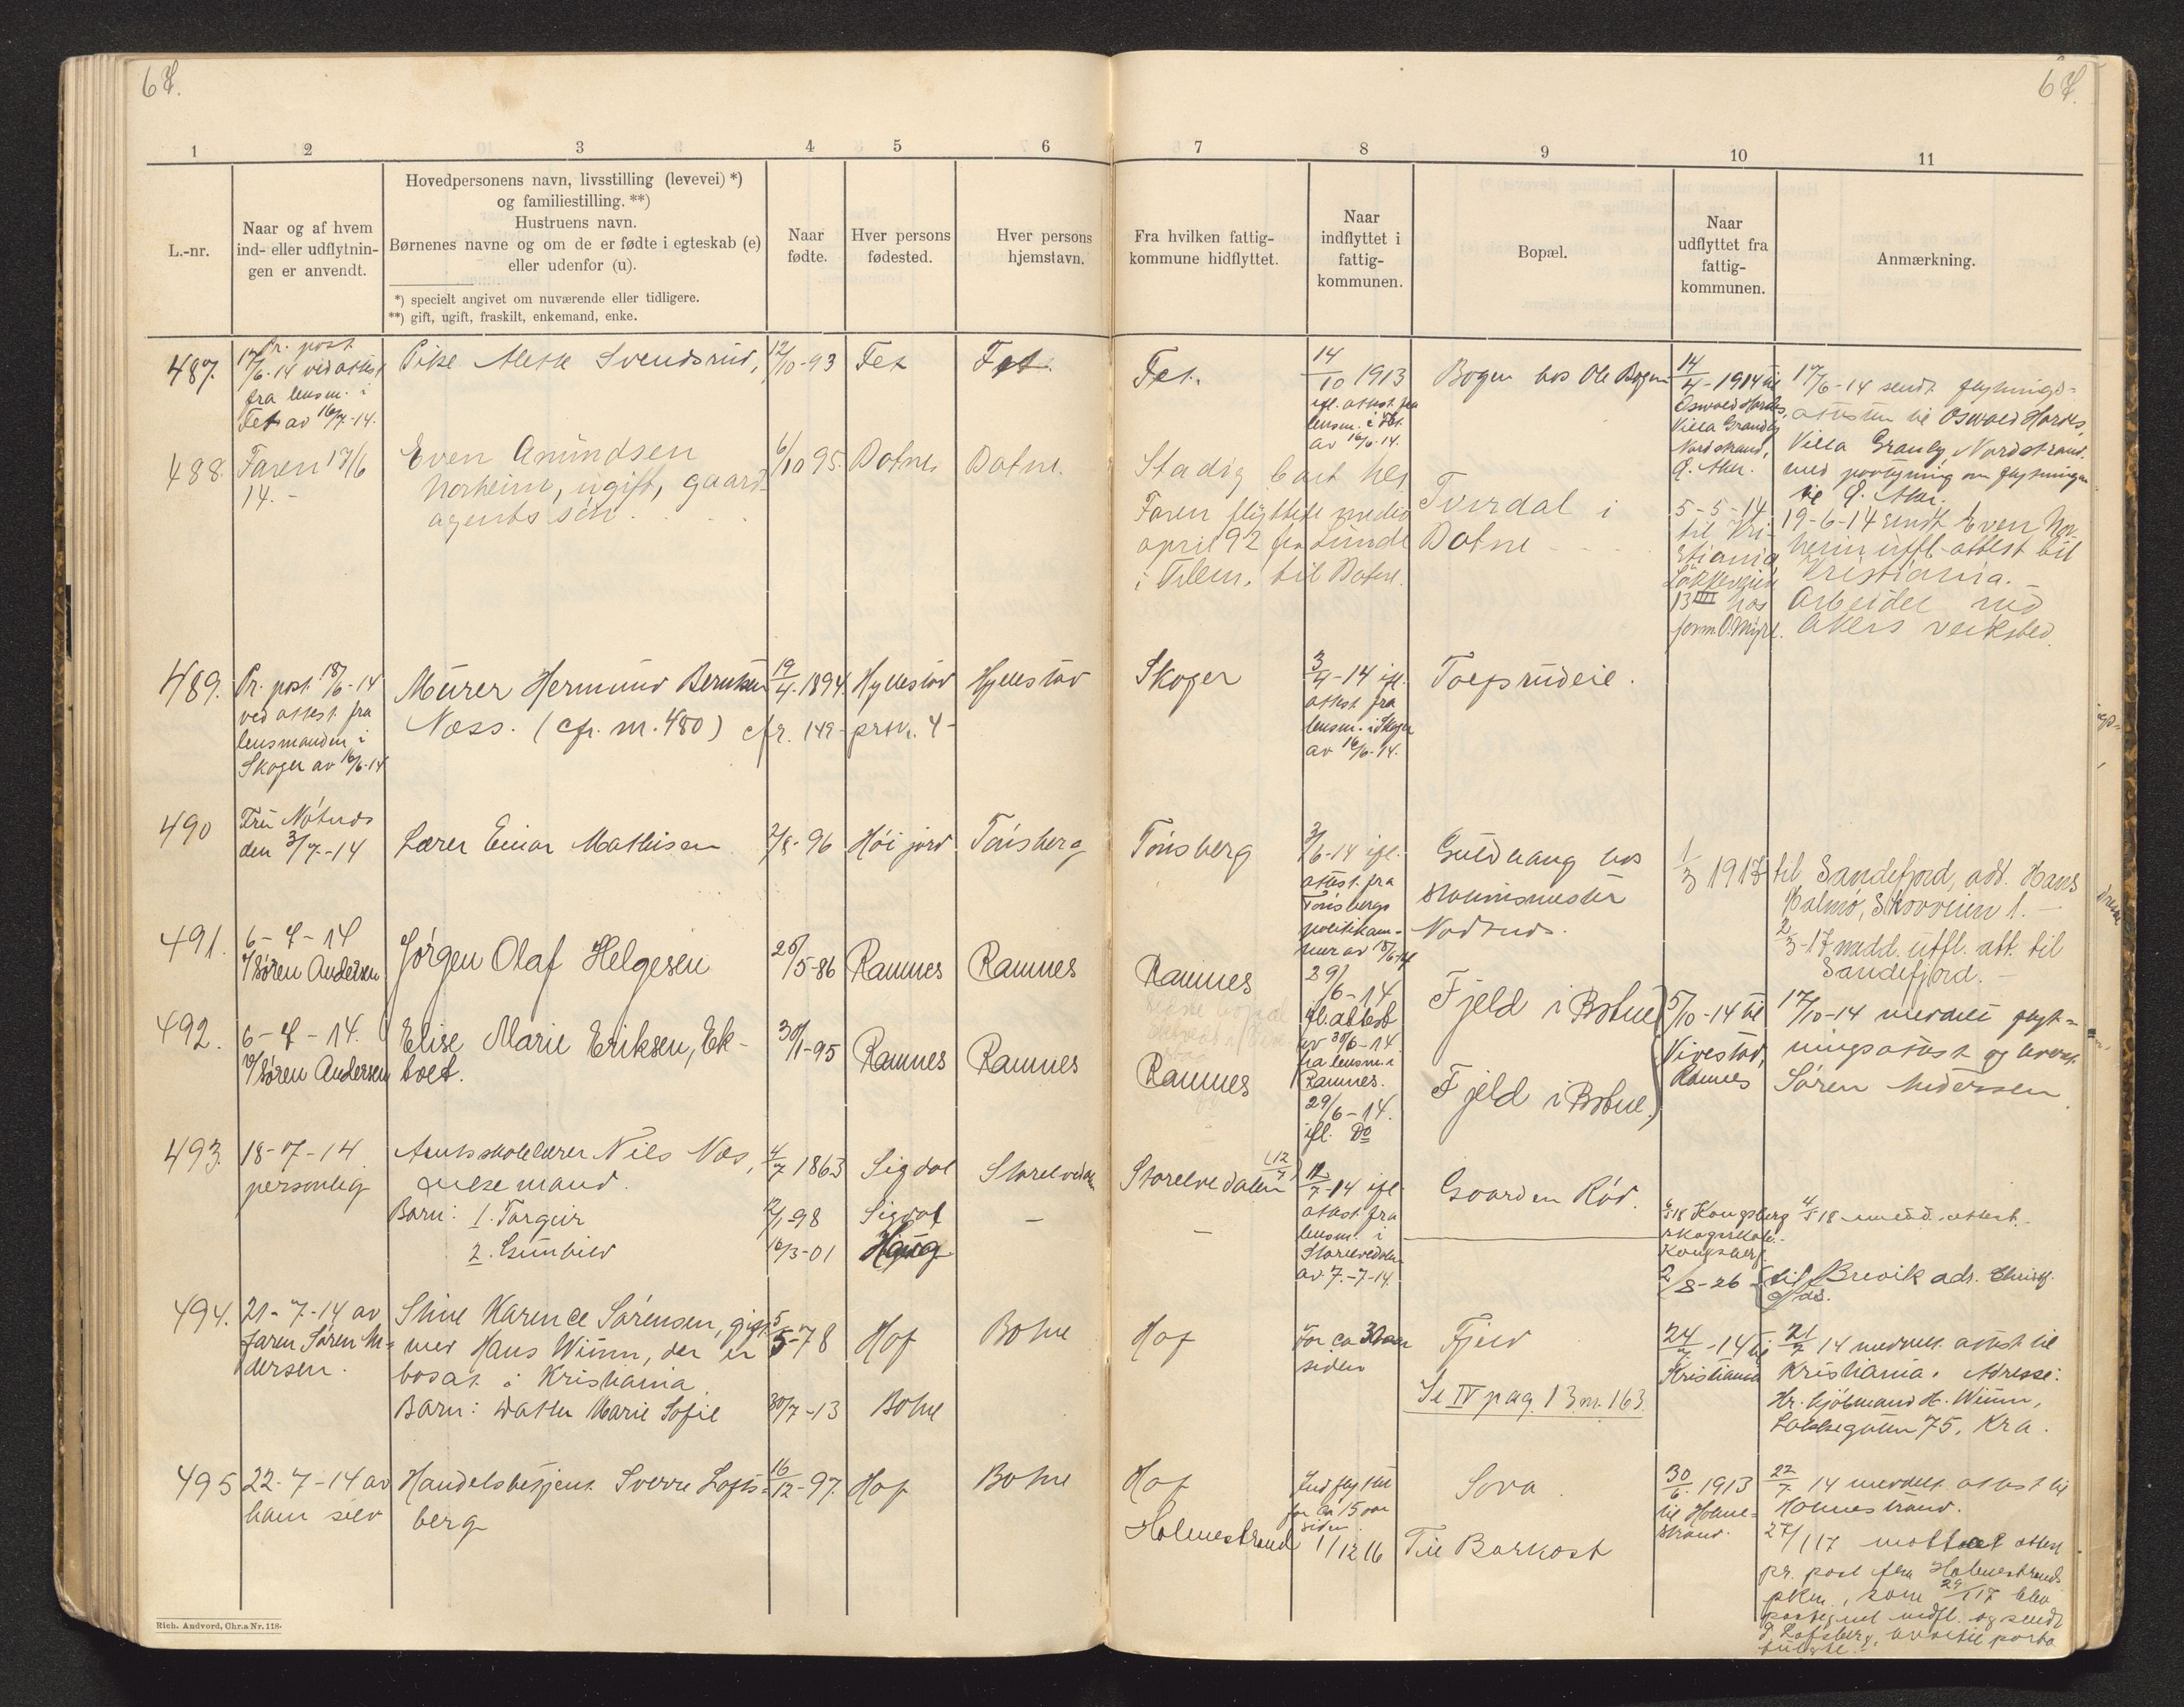 67.
67.
1
2
3
4
5
6
7
8
9
10
11
L.-nr.
Naar og af hvem
ind- eller udflytnin-
gen er anvendt.
Hovedpersonens navn, livsstilling (levevei) *)
og familiestilling. **)
Hustruens navn.
Børnenes navne og om de er fødte i egteskab (e)
eller udenfor (u).
*) specielt angivet om nuværende eller tidligere.
**) gift, ugift, fraskilt, enkemand, enke.
Naar
fødte.
Hver persons
fødested.
Hver persons
hjemstavn.
Fra hvilken fattig-
kommune hidflyttet.
Naar
indflyttet i
fattig-
kommunen.
Bopæl.
Naar
udflyttet fra
fattig-
kommunen.
Anmærkning.
487.
Pr. post
17/6-14 ved attest
fra lensm. i
Fet av
Pike Svendsrud,
12/10-93
Fet
Fet.
Fet.
14/10 1913
ifl. attest fra
lensm. i Fet.
av 16/6-14.
Bogen hos Ole Bogen
14/4-1914 til
Oswald
Villa Granly
Nordstrand,
Ø. Aker.
17/6-14 sendt flytnings-
attesten til Oswald
Villa Granly, Nordstrand.
med om flytningen
til Ø. Aker.
488
Faren 17/6
14.-
Even Amundsen
Norheim, ugift, gaard-
agents søn.
6/10 95.
Botne
Botne.
Stadig bart her
Faren flyttet medio
april 92 fra Lunde
i Telem. til Botne.
Tverdal i
Botne
5-5-14
til Kri-
stiania
13 III hos
19-6-14 sendt Even Nor-
heim utfl. attest til
Kristiania.
Arbeider ved
Akers veiksted
489.
Pr. post 18/6-14
ved attest fra
lensmanden i
Skoger av 16/6-14
Murer Hermund Berntsen
Næss. (cfr. nr. 480) cfr. 149- prsn. 4-
19/4-1894.
Hyllestad
Hyllestad
Skoger
3/4-14 ifl.
attest fra
lensm. i Skoger
av 16/6-14.
490
Fru Nøtnes
den 3/7-14
Lærer Einar Mathisen
2/8-96
Høijord
Tønsberg
Tønsberg
3/6-14 ifl.
attest fra
Tønsbergs
politikam-
mer av 18/6-14
Guldhaug hos
stationsmester
1/3 1917
til Sandefjord, adr. Hans
Holmø, Skovveien 1.-
2/3-17 medd. utfl. att. til
Sandefjord.-
491.
6-7-14
v/Søren Andersen
Jørgen Olaf Helgesen
26/5-86
Ramnes
Ramnes
Ramnes
29/6-14
ifl. attest
av 30/6-14
fra lensm. i
Ramnes.
Fjeld i Botne
5/10-14 til
Vivestad,
Ramnes
17/10-14 meddelt flyt-
ningsattest og
Søren Andersen
492.
6-7-14.
v/Søren Andersen
Elise Marie Eriksen, Ek-
tvet.
30/1-95
Ramnes
Ramnes
Ramnes
29/6-14.
ifl. Do
Fjeld i Botne.
493.
18-7-14
personlig
Amtsskolelærer Nils Næs,
enkemand.
Barn: 1. Torgeir
2. Gunhild
4/7 1863
2/1-98
16/3-01
Sigdal
Sigdal
Haug
Storelvedalen
-
Storelvedalen
-
(12/7)
12/7-14 ifl
attest fra
lensm. i
Storelvedalen
av 7.-7-14.
Gaarden Rød.
6/5 18 Kongsberg
skogskole
Kongsberg.
2/8-26
4/5 18 medd. attest
til Brevik adr.
494.
21-7-14 av
faren Søren An-
dersen.
Stine Karence Sørensen, gift
med Hans Wiinn, der er
bosat i Kristiania
Barn: datter Marie Sofie
5/5-78
30/7-13
Hof
Botne
Botne
Hof
For ca 30 aar
siden
Fjeld
Se IV pag. 13 nr. 163
24/7-14 til
Kristiania
21/7 14 meddelt attest til
Kristiania. Adresse:
Hr. kjøbmand H. Wiinn,
Lakkegaten 75, Kra.
495
22-7-14 av
ham selv
Handelsbetjent Sverre Lofts-
berg
16/12-97.
Hof
Botne
Hof
Holmestrand
Indflyttet
for ca 15 aar
siden.
1/12 16
Sora.
Til Barkost
30/6 1913
til Holme-
strand.
22/7 14 meddelt attest til
Holmestrand.
27/1 17 mottat attest
pr. post fra Holmestrands
pkm., som 29/1 17 blev
paategnet indfl. og sendt
Rich. Andvord, Chr.a Nr. 118.